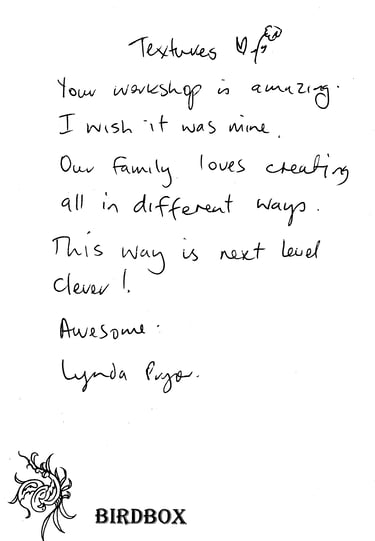 Textures
Your workshop is amazing.
I wish it was mine.
Our family loves creating
all in different ways.
This way is next level
clever!.
Awesome.
Lynda Pryor.
BIRDBOX